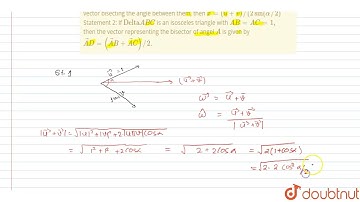 vector bisecting the angle between them, then
Statement 2: If DeltaABC is an isosceles triangle with AB = AC = 1,
then the vector representing the bisector of angle A is given by
AD = (AB + AC)/2.
St. 1
(u⃗+v⃗)
w⃗ = u⃗+v⃗
ŵ = u⃗+v⃗
|u⃗+v⃗|
= √1²+1²+2cosα = √2+2cosα = √2(1+cosα)
= √2·2cos²α/2
doubtnut